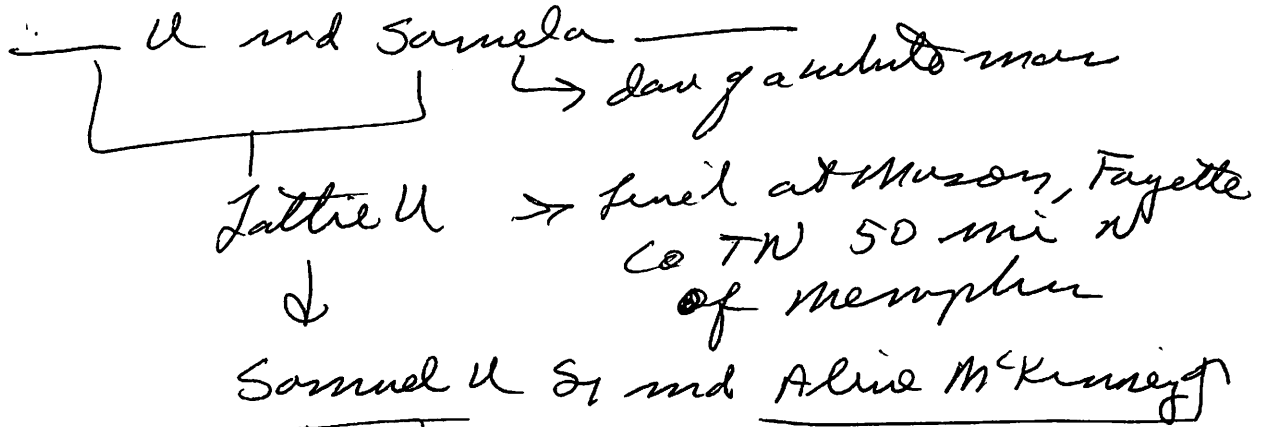 U md Samela
dau of a white man
Lattie U
lived at Mason, Fayette
Co TN 50 mi N
of Memphis
Samuel U Sr md Aline McKinney